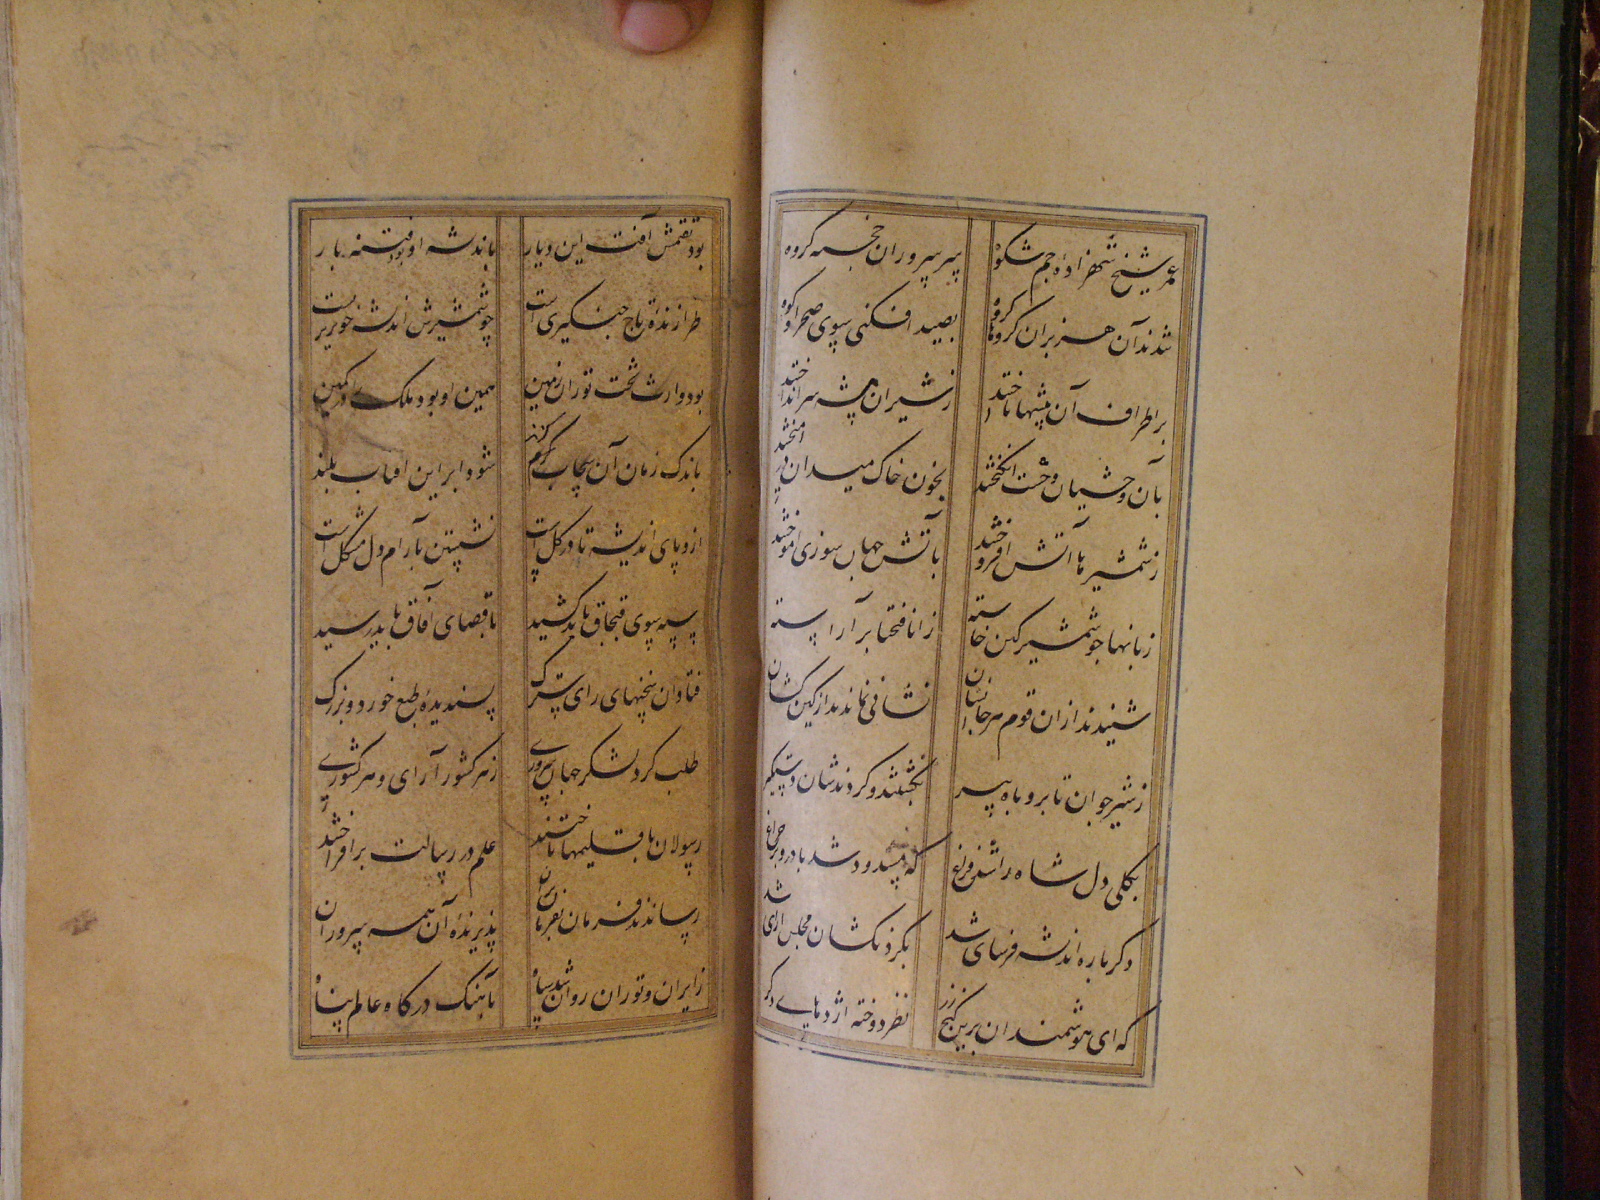 عمر شیخ شهزاده جم شکوه پس پروران خجسته گروه
شدند آن هزبران گروها گروه بصید افکنی سوی صحرا و کوه
بر اطراف آن بیشها تاختند ز شیران بیشه سر انداختند
بآن وحشیان وحشت انگیختند بخون خاک میدان در آمیختند
ز شمشیرها آتش افروختند باتش جهان سوزی آموختند
زبانها چو شمشیر کین خاسته زبانا فتحنا بر آراسته
شنیدند از آن قوم سر جانشان نشانی نماندند از کین کشان
ز شیر جوان تا بروباه پیر بکشتند و کردندشان دستگیر
بکلی دل شاه را شد فراغ که مسدود شد باد و بر چراغ
دگر باره اندیشه فرسای شد بگردنکشان مجلس آرای شد
که ای هوشمندان برین گنج زر نظر دوخته اژدهایی دگر
بود تقمش آفت این دیار باندیشه او بود فتنه بار
طرازنده تاج جنکیزی است چو شمشیرش اندیشه خونریزیست
بود وارث تخت توران زمین همین او بود ملک را در کمین
باندک زمان آن سحاب گزند شود ابر این آفتاب بلند
ازو پای اندیشه تا در گل است نشستن بآرام دل مشکل است
سپه سوی قبچاق باید کشید باقصای آفاق باید رسید
فتاد آن سخنهای رای سترک پسندیده طبع خورد و بزرک
طلب کرد لشکر جهان پروری ز هر کشور آرای و هر کشوری
رسولان باقلیمها تاختند علم در رسالت بر افراختند
رساندند فرمان بفرمان بران پذیرنده آن همه سروران
ز ایران و توران روان شد سپاه بآهنک درگاه عالم پناه